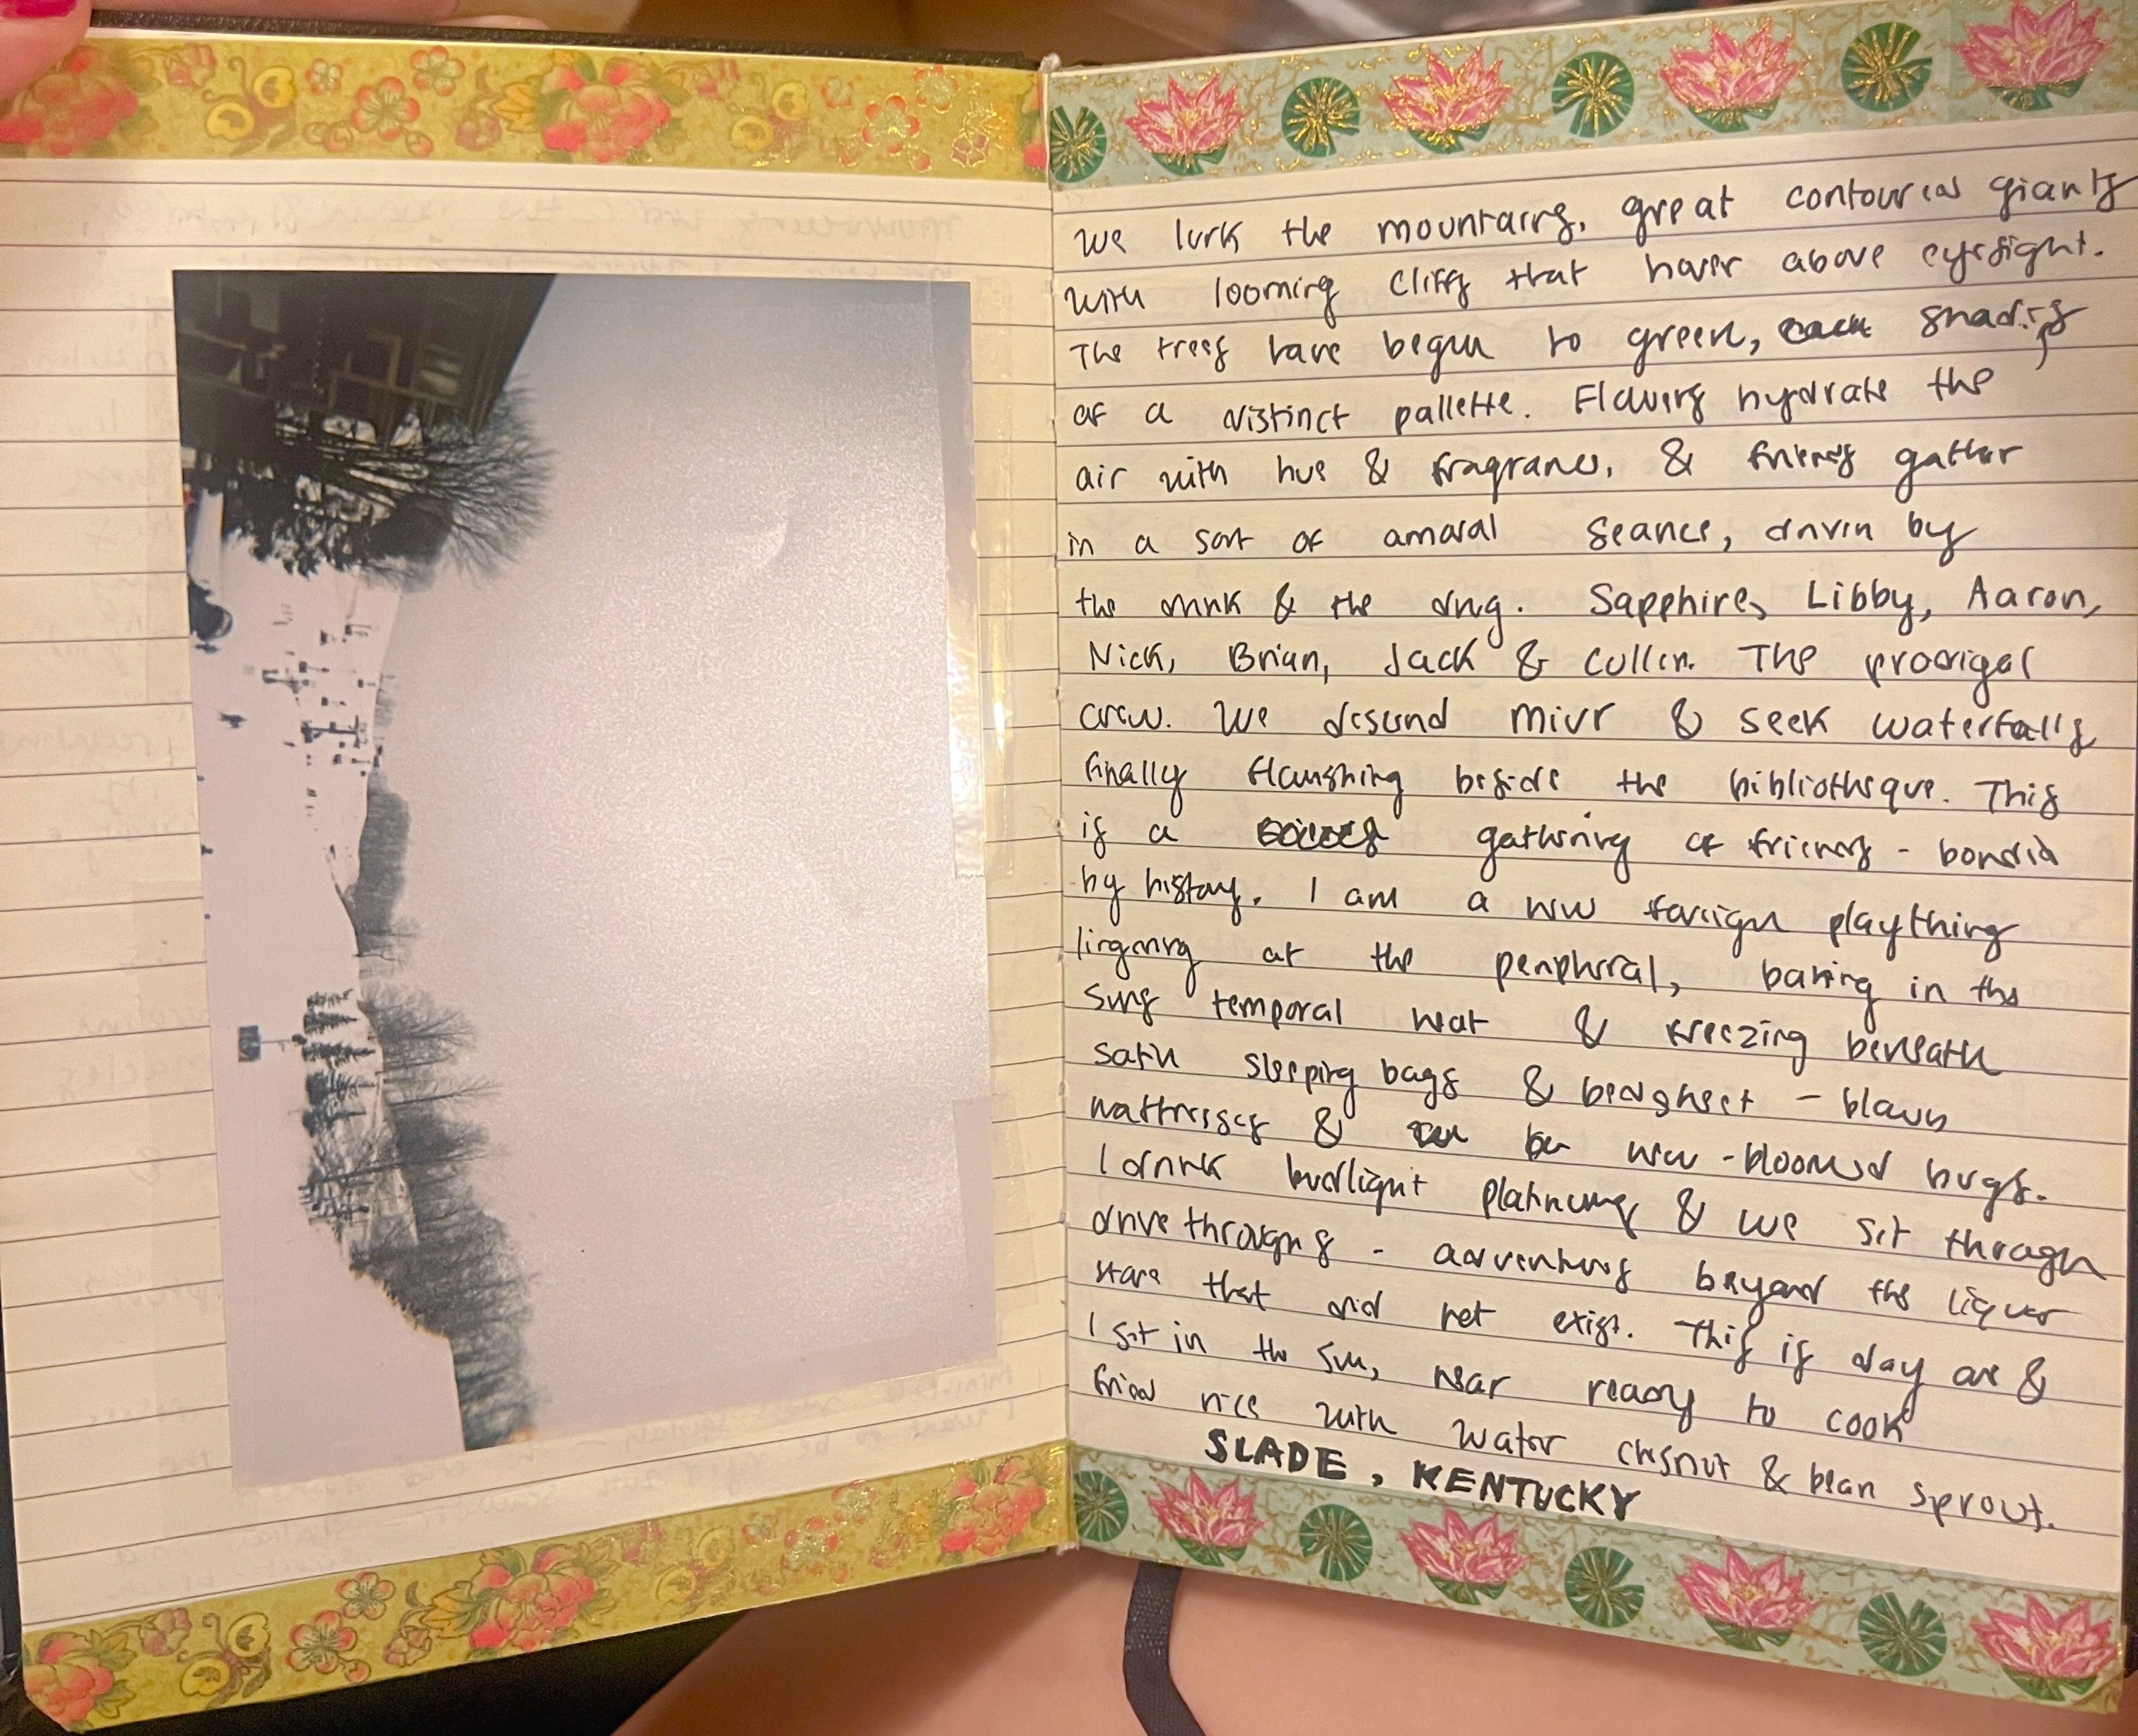 We lurk the mountains, great contoured giants
with looming cliffs that hover above eyesight.
The trees have begun to green, each shadi
of a distinct pallette. Flowers hydrate the
air with hue & fragrance, & friends gather
in a sort of amoral seance, driven by
the drink & the drug. Sapphire, Libby, Aaron,
Nick, Brian, Jack & Cullen. The prodigal
crew. We descend river & seek waterfalls
finally flourishing beside the bibliotheque. This
is a gathering of friends - bonded
by history. I am a new foreign plaything
lingering at the peripheral, baking in the
suns temporal heat & freezing beneath
satin sleeping bags & bedsheet - blown
mattresses & new-bloomed bugs.
I drink budlight platinums & we sit through
drive throughs - adventures beyond the liquor
store that did not exist. This is day one &
I sit in the sun, near ready to cook
fried rice with water chesnut & bean sprout.
SLADE, KENTUCKY